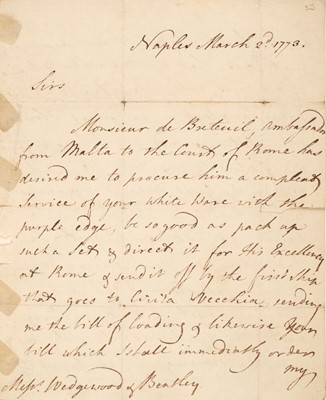 Naples March 2.d 1773.
Sirs
Monsieur de Breteuil, ambassador
from Malta to the Court of Rome has
desired me to procure him a compleat
Service of your white Ware with the
purple edge, be so good as pack up
such a Set & direct it for His Excellency
at Rome & send it off by the first Ship
that goes to Civita Vecchia, sending
me the bill of loading & likewise your
bill which I shall immediatly order
my
Mess.rs Wedgewood & Bentley